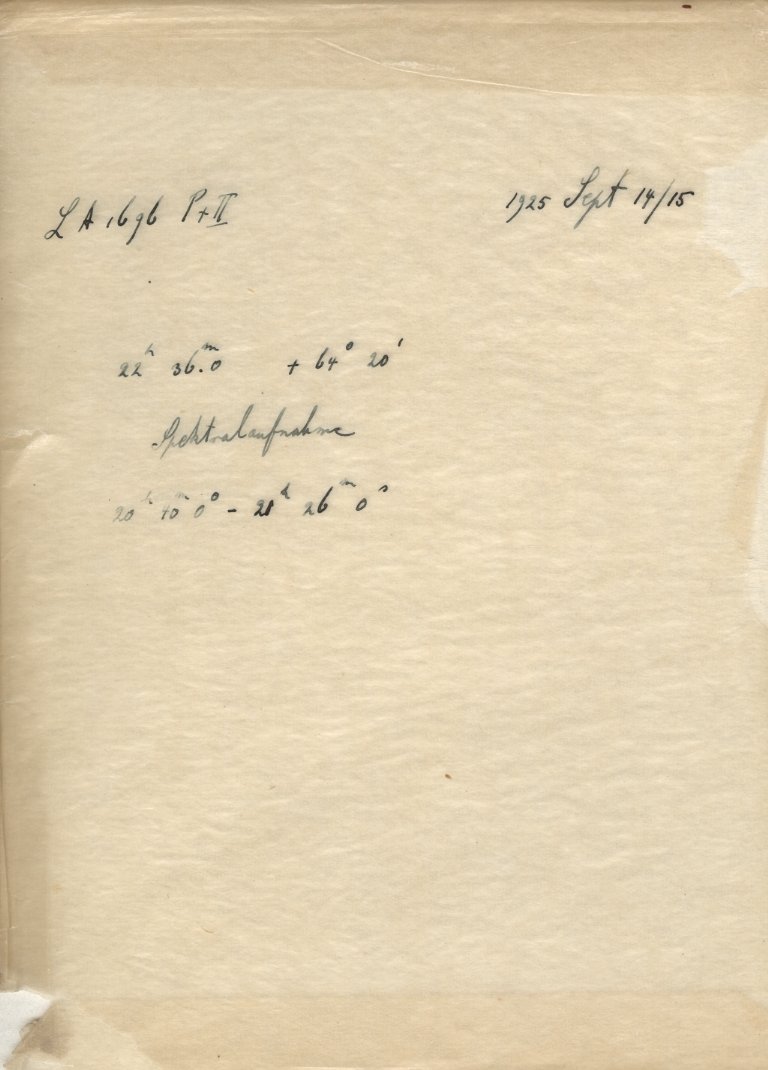 LA 1696 P+II 1925 Sept 14/15
22h 36.m0 + 64° 20'
Spektralaufnahme
20h 40m 0s - 21h 26m 0s